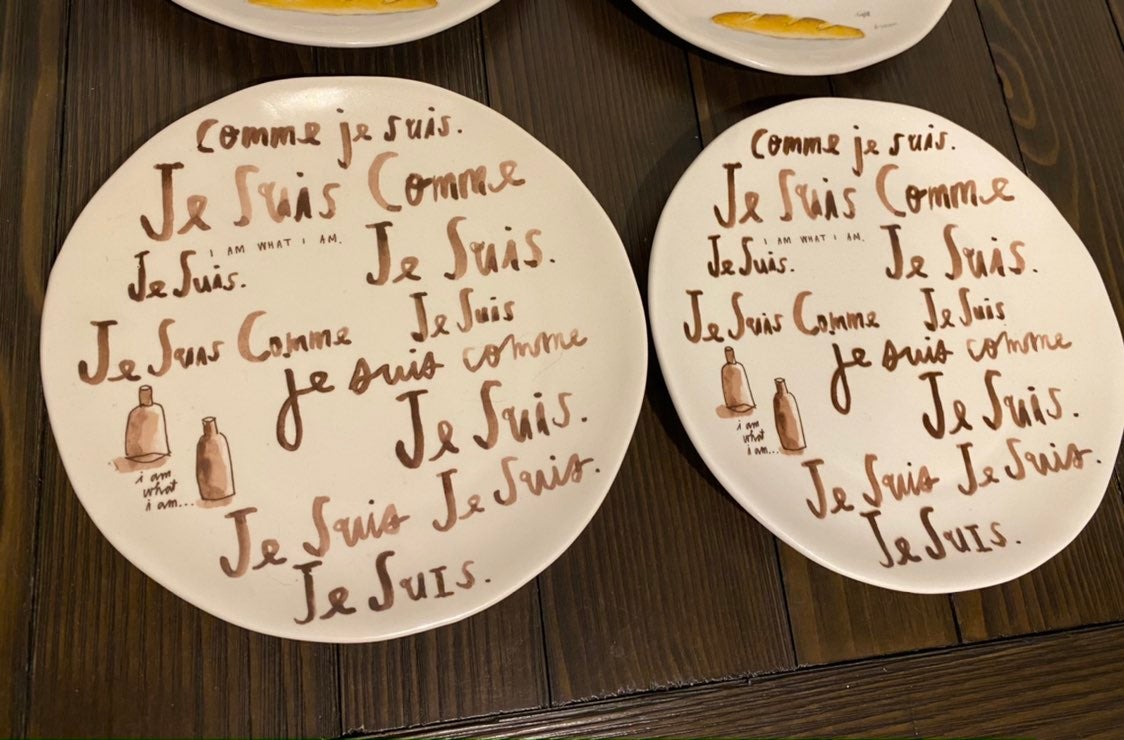 Comme je suis.
Je Suis Comme
I AM WHAT I AM.
Je Suis.
Je Suis.
Je Suis Comme
Je Suis
je suis comme
Je Suis.
i am
what
i am...
Je Suis Je Suis.
Je SuIs.
Comme je suis.
Je Suis Comme
I AM WHAT I AM.
Je Suis.
Je Suis.
Je Suis Comme
Je Suis
je suis comme
Je Suis.
i am
what
i am...
Je Suis Je Suis.
Je SuIs.